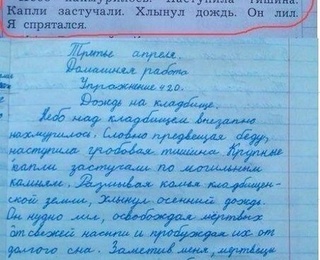 нахмурилось. Наступила тишина.
Капли застучали. Хлынул дождь. Он лил.
Я спрятался.
Третье апреля.
Домашняя работа
Упражнение 420.
Дождь на кладбище.
Небо над кладбищем внезапно
нахмурилось. Словно предвещая беду,
наступила гробовая тишина. Крупные
капли застучали по могильным
камням. Размывая комья кладбищен-
ской земли, хлынул осенний дождь.
Он нудно лил, освобождая мёртвых
от свежей насыпи и пробуждая их от
долгого сна. Заметив меня, мертвецы